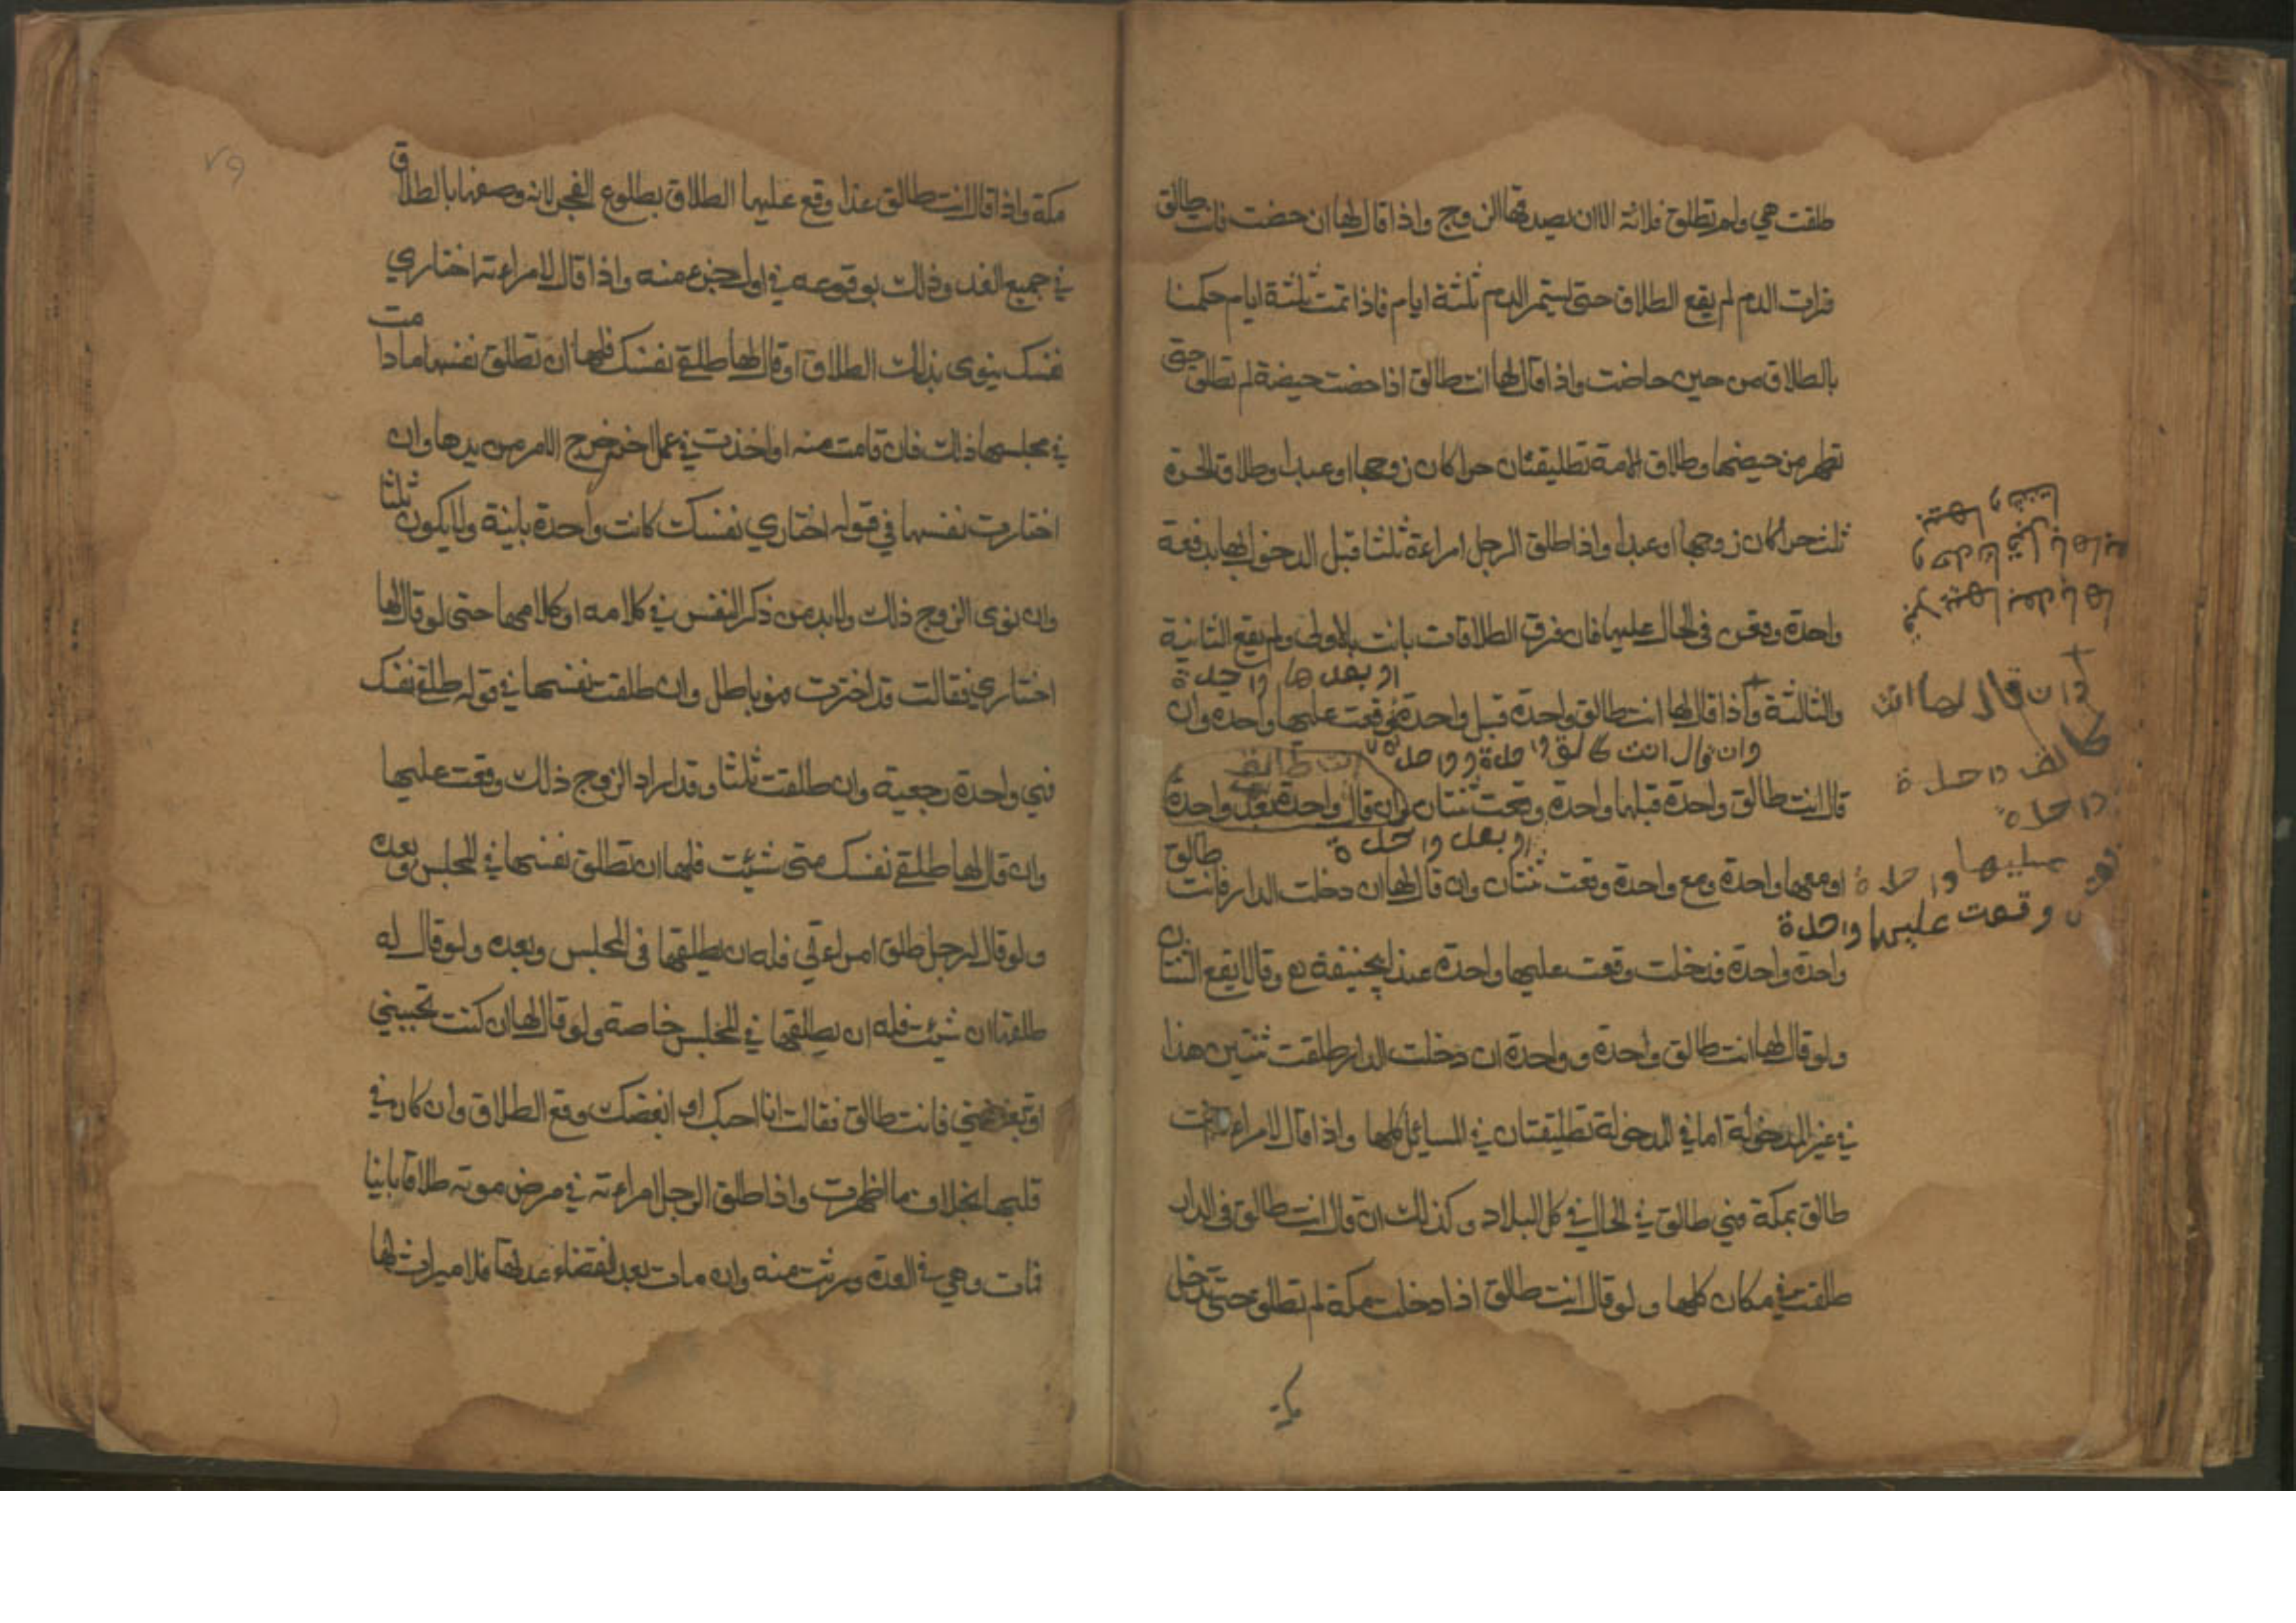 طلقت هي ولم تطلق فلانة الا ان يصدقها الزوج واذا قال لها ان حضت فانت طالق
فرات الدم لم يقع الطلاق حتى يستمر الدم ثلثة ايام فاذا تمت ثلثة ايام حكمنا
بالطلاق من حين حاضت واذا قال لها انت طالق اذا حضت حيضة لم تطلق حتى
تطهر من حيضها وطلاق الامة تطليقتان حرا كان زوجها او عبدا وطلاق الحرة
ثلث حرا كان زوجها او عبدا واذا طلق الرجل امراءة ثلثا قبل الدخول بها بدفعة
واحدة وقعن في الحال عليها فان فرق الطلاقات بانت بالاولى ولم يقع الثانية
او بعدها واحدة
والثالثة واذا قال لها انت طالق واحدة قبل واحدة وقعت عليها واحدة وان
وان قال انت طالق واحدة وواحدة
قال انت طالق واحدة قبلها واحدة وقعت ثنتان وان قال واحدة بعد واحدة
او بعد واحدة
او معها واحدة ومع واحدة وقعت ثنتان وان قال لها ان دخلت الدار فانت طالق
واحدة واحدة فدخلت وقعت عليها واحدة عند ابيحنيفة رح وقالا يقع الثنتان
ولو قال لها انت طالق واحدة وواحدة ان دخلت الدار طلقت ثنتين هذا
في غير المدخولة اما في المدخولة تطليقتان في المسائل كلها واذا قال لامراءته انت
طالق بمكة فهي طالق في الحال في كل البلاد وكذلك ان قال انت طالق في الدار
طلقت في مكان كلها ولو قال انت طالق اذا دخلت مكة لم تطلق حتى تدخل
وان قال لها انت
طالق واحدة
واحدة
عليها واحدة
وقعت عليها واحدة
مكة واذا قال انت طالق غدا وقع عليها الطلاق بطلوع الفجر لانه وصفها بالطلاق
في جميع الغد وذلك بوقوعه في اول جزء منه واذا قال لامراءته اختاري
نفسك ينوي بذلك الطلاق او قال لها طلقي نفسك فلها ان تطلق نفسها ما دامت
في مجلسها ذلك فان قامت منه او اخذت في عمل اخر خرج الامر من يدها وان
اختارت نفسها في قوله اختاري نفسك كانت واحدة باينة ولا يكون ثلثا
وان نوى الزوج ذلك ولا بد من ذكر النفس في كلامه او كلامها حتى لو قال لها
اختاري فقالت قد اخترت فهو باطل وان طلقت نفسها في قوله طلقي نفسك
فهي واحدة رجعية وان طلقت ثلثا وقد اراد الزوج ذلك وقعت عليها
وان قال لها طلقي نفسك متى شئت فلها ان تطلق نفسها في المجلس وبعده
ولو قال لرجل طلق امراءتي فله ان يطلقها في المجلس وبعده ولو قال له
طلقها ان شئت فله ان يطلقها في المجلس خاصة ولو قال لها ان كنت تحبيني
او تبغضيني فانت طالق فقالت انا احبك او ابغضك وقع الطلاق وان كان في
قلبها بخلاف ما اظهرت واذا طلق الرجل امراءته في مرض موته طلاقا باينا
فمات وهي في العدة ورثت منه وان مات بعد انقضاء عدتها فلا ميراث لها